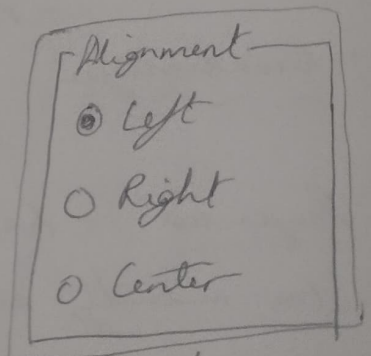 Alignment
Left
Right
Center